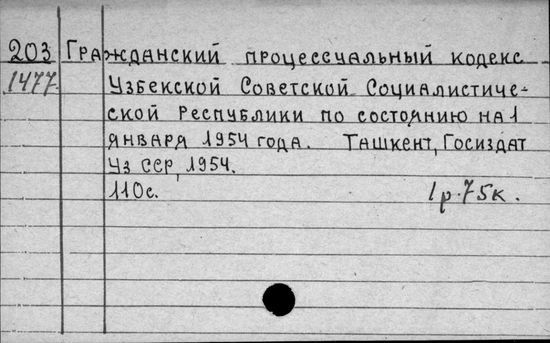 203 Гражданский процессуальный кодекс
1477. Узбекской Советской Социалистиче-
ской Республики по состоянию на 1
января 1954 года. Ташкент, Госиздат
Уз ССР, 1954.
110с. 1р.75к.